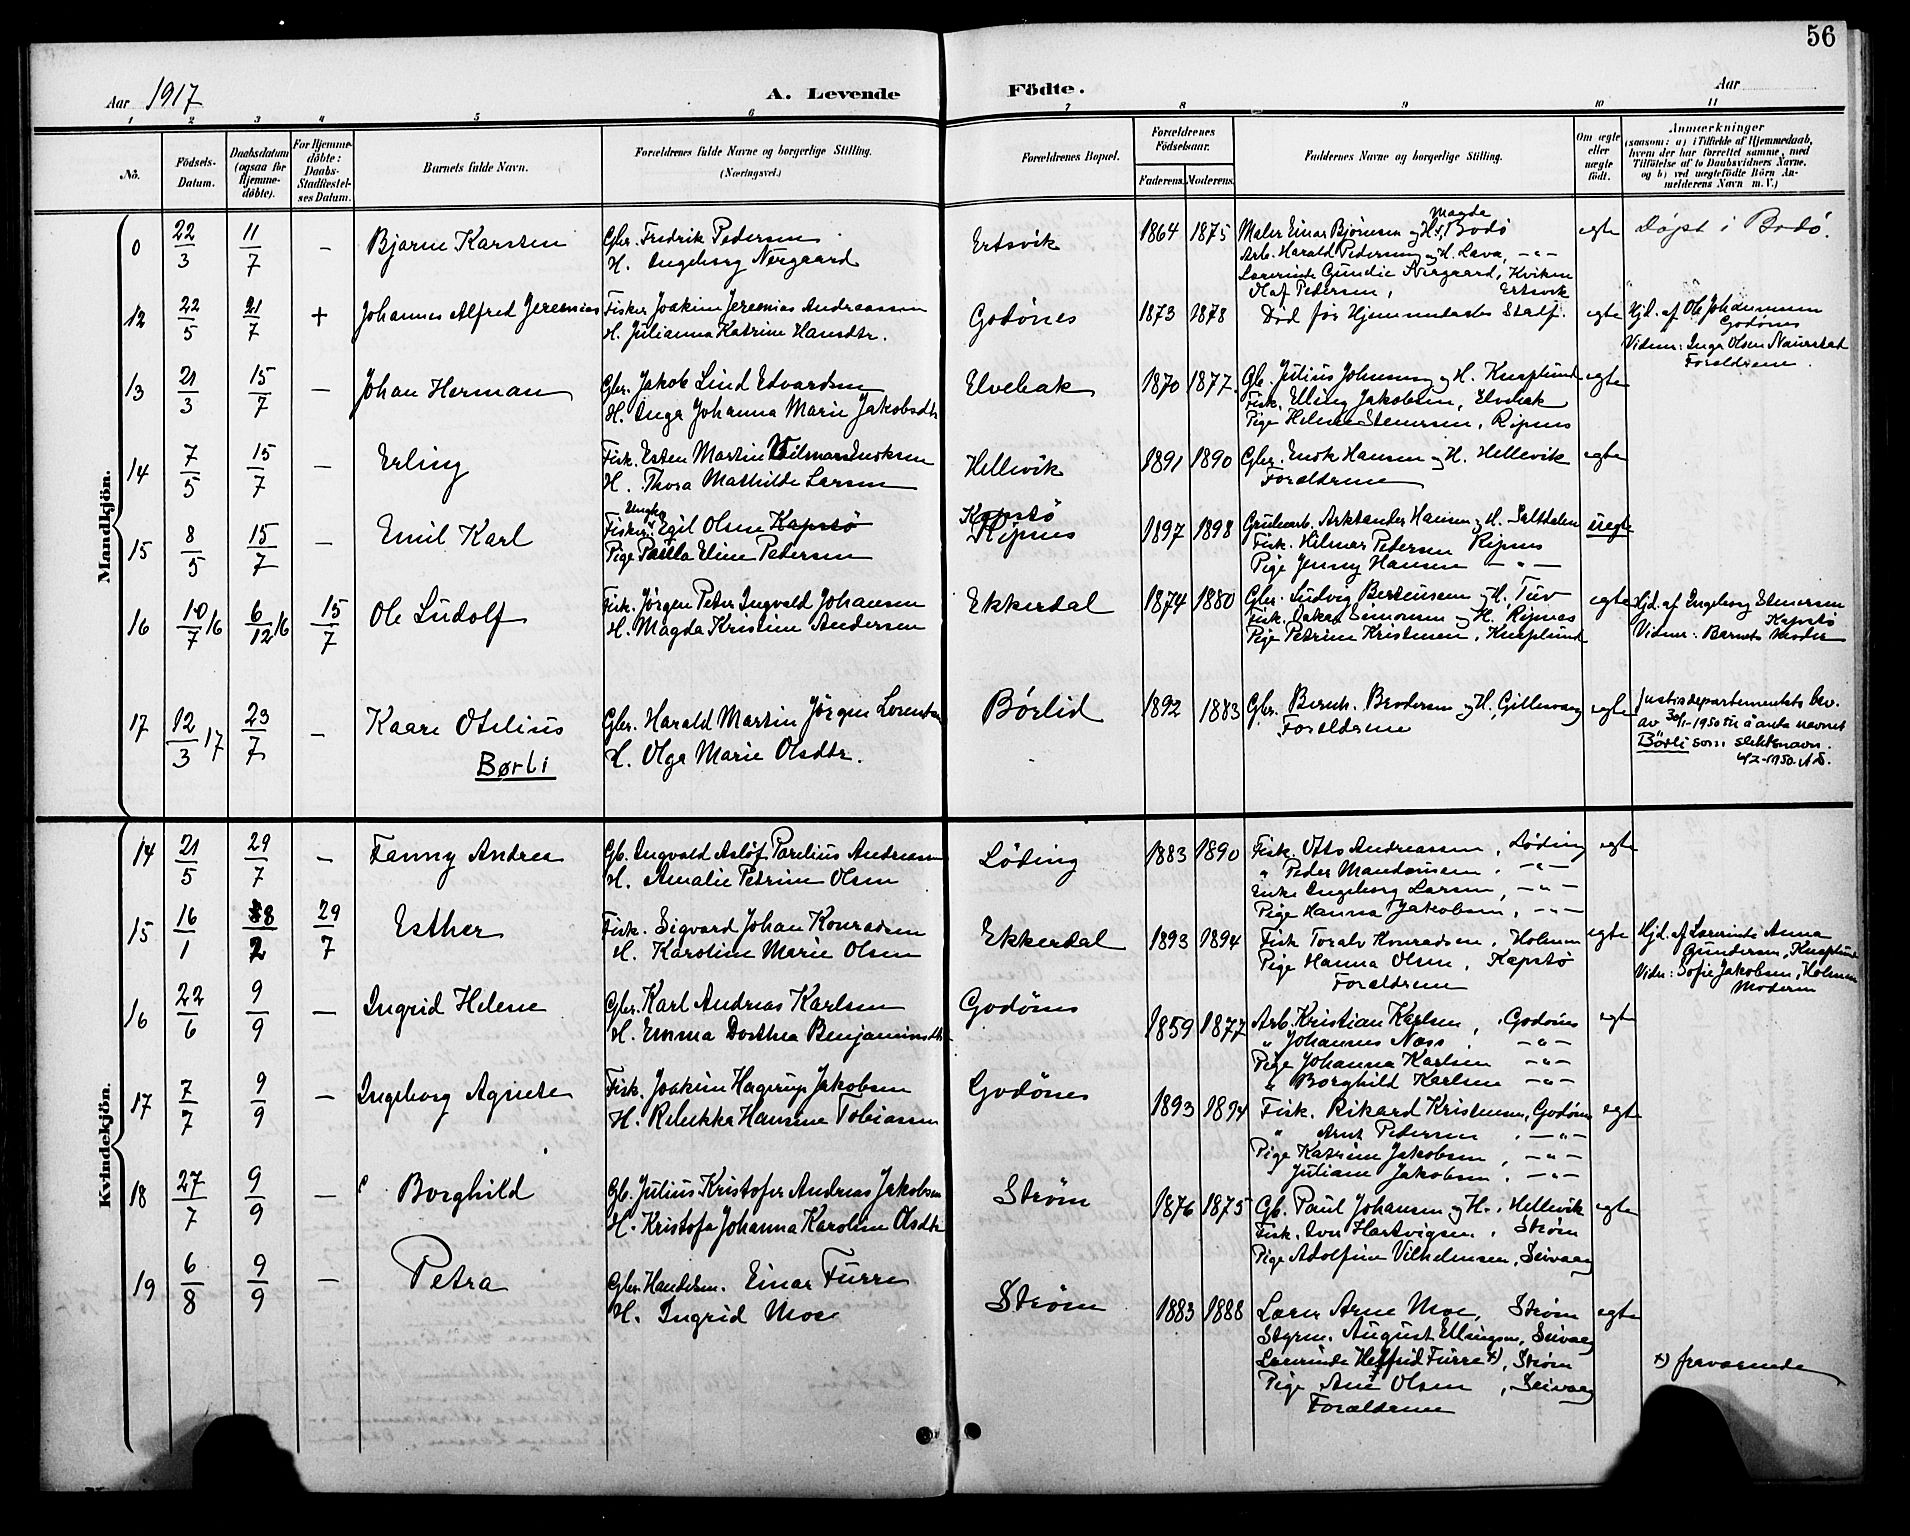 56
Aar 1917
A. Levende Födte.
Aar
1 2 3 4 5 6 7 8 9 10 11
No.
Födsels-Datum.
Daabsdatum (ogsaa for Hjemme-döbte).
For Hjemme-döbte: Daabs-Stadfæstel-ses Datum.
Barnets fulde Navn.
Forældrenes fulde Navne og borgerlige Stilling.
(Næringsvei.)
Forældrenes Bopæl.
Forældrenes Födselsaar.
Faderens. Moderens.
Faddernes Navne og borgerlige Stilling.
Om ægte eller uægte födt.
Anmærkninger
(saasom: a) i Tilfælde af Hjemmedaab, hvem der har forrettet samme, med Tilföielse af to Daabsvidners Navne. og b) ved uægtefödte Börn An-melderens Navn m. V.)
Mandkjön.
0 22/3 11/7 – Bjarne Karsten
Gbr. Fredrik Pedersen
H. Ingeborg Nergaard
Ertsvik 1864 1875
Maler Einar Björnsen og H. Magda, Bodö
Arb. Harald Pedersen og H. Lava, – " –
Lærerinde Gundie Nergaard, Kviken
Olaf Pedersen, Ertsvik
egte Døpt i Bodö.
12 22/5 21/7 + Johannes Alfred Jeremias
Fisker Joakim Jeremias Andreassen
H. Julianna Katrine Hansdtr.
Godönes 1873 1878
Död för Hjemmedaabs Stadf.
egte Hjd. af Ole Johannesen
Godönes
Vidner: Inga Olsen Naurstad
Forældrene.
13 21/3 15/7 – Johan Herman
Gbr. Jakob Lind Edvardsen
H. Inga Johanna Marie Jakobsdtr
Elvebak 1870 1877.
Gb. Julius Johnsen og H. Knaplund
Fisk. Elling Jakobsen, Elvebak
Pige Helene Stenersen, Ripnes
egte
14 7/5 15/7 – Erling
Fisk. Esten Martin Vilmar Enoksen
H. Thora Mathilde Larsen
Hellevik 1891 1890
Gbr. Enok Hansen og H. Hellevik
Forældrene
egte
15 8/5 15/7 – Emil Karl
Ungk.
Fisker Egil Olsen Kapstö
Pige Paula Eline Petersen
Kapstö
Ripnes 1897 1898
Grubearb. Arktander Hansen og H. Saltdalen
Fisk. Hilmar Petersen Ripnes
Pige Jenny Hansen – " –
uegte
16 10/7 16 6/12 16 15/7 Ole Ludolf
Fisk. Jörgen Peter Ingvald Johansen
H. Magda Kristine Andersen
Ekkerdal 1874 1880
Gbr. Ludvig Berntsen og H., Tuv
Fisk. Oskar Simonsen og H. Ripnes
Pige Petrine Kristensen, Knaplund
egte Hjd. af Ingeborg Stenersen
Kapstö
Vidner: Barnets Moder
17 12/3 17 23/7 – Kaare Otelius
Børli
Gbr. Harald Martin Jörgen Lorentsen
H. Olga Marie Olsdtr.
Börlid 1892 1883
Gbr. Bernh. Brodersen og H., Gillesvaag
Forældrene
egte Justisdepartementets bev.
av 30/1-1950 til å anta navnet
Börli som slektsnavn.
4/2-1950. AS.
Kvindekjön.
14 21/5 29/7 – Fanny Andrea
Gb. Ingvald Aslöf Parelius Andreassen
H. Amalie Petrine Olsen
Löding 1883 1890
Fisk. Otto Andreassen, Löding
" Peder Mandorsen. – " –
Enke Ingeborg Larsen, – " –
Pige Hanna Jakobsen, – " –
egte
15 16/1 8/2 29/7 Esther
Fisk. Sigvard Johan Konradsen
H. Karoline Marie Olsen
Ekkerdal 1893 1894
Fisk Toralv Konradsen, Holmen
Pige Hanna Olsen, Kapstö
Forældrene
egte Hjd. af Lærerinde Anna
Gundersen, Knaplund
Vidn: Sofie Jakobsen, Holmen
Moderen
16 22/6 9/9 – Ingrid Helene
Gbr. Karl Andreas Karlsen
H. Emma Dorthea Benjaminsdtr
Godönes 1859 1877
Arb. Kristian Karlsen, Godönes
" Johannes Næss, – " –
Pige Johanna Karlsen – " –
" Borghild Karlsen – " –
egte
17 7/7 9/9 – Ingeborg Agnete
Fisk. Joakim Hagerup Jakobsen
H. Rebekka Hansine Tobiassen
Godönes 1893 1894
Fisk. Rikard Kristensen, Godönes
" Arnt Pedersen, – " –
Pige Katrine Jakobsen, – " –
" Juliane Jakobsen, – " –
egte
18 27/7 9/9 – Borghild
Gb. Julius Kristofer Andreas Jakobsen
H. Kristofa Johanna Karoline Olsdtr
Ström 1876 1875
Gb. Paul Johansen og H., Hellevik
Fisk. Iver Hartvigsen. Ström
Pige Adolfine Vilhelmsen, Seivaag
egte
19 6/8 9/9 – Petra
Gbr. Handelsm. Einar Furre
H. Ingrid Moe
Ström 1883 1888
Lærer Arne Moe, Ström
Styrm. August Ellingsen, Seivaag
Lærerinde Helfrid Furre x), Ström
Pige Ane Olsen, Seivaag
Forældrene
egte
x) fraværende